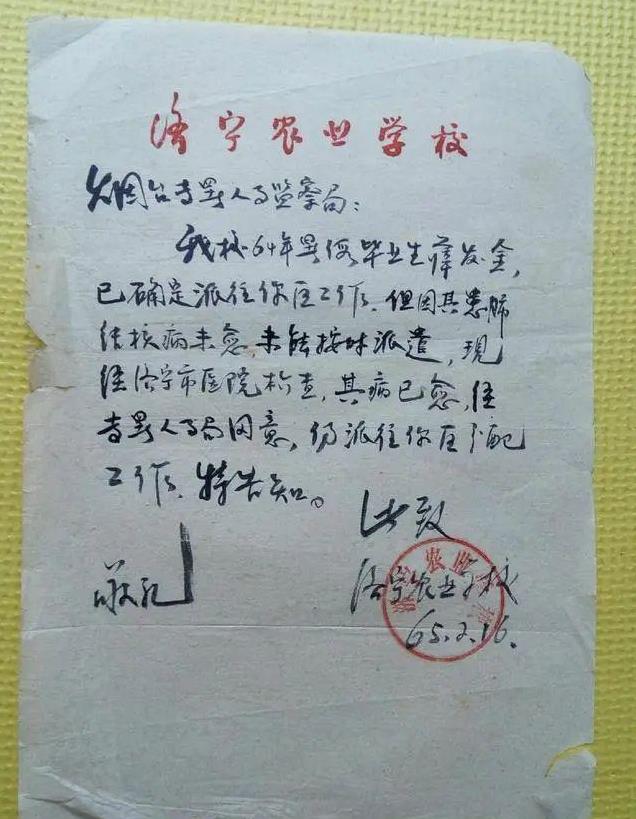 济宁农业学校
烟台专署人事监察局：
我校64年暑假毕业生薛发金，
已确定派往你区工作．但因其患肺
结核病未愈．未能按时派遣，现
经济宁市医院检查，其病已愈，经
专署人事局同意，仍派往你区分配
工作．特告知。
此致
敬礼
济宁农业学校
65.2.16.